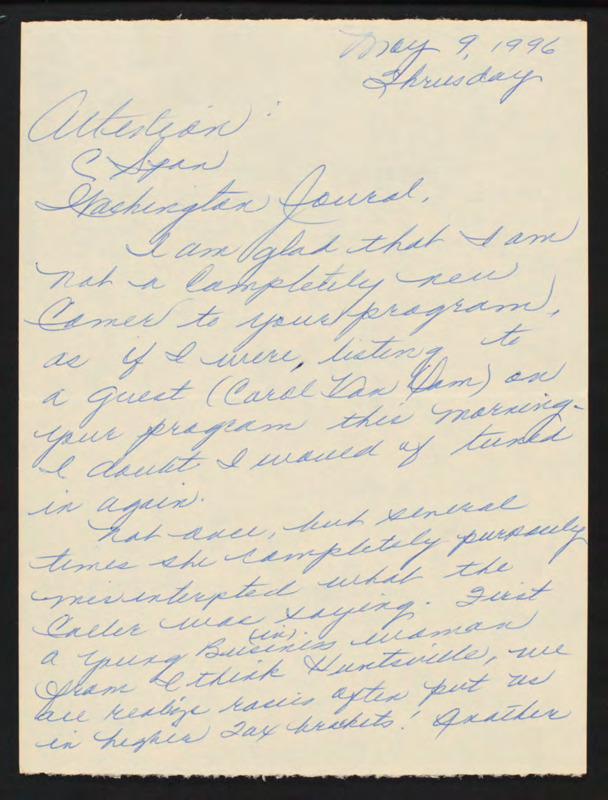 May 9, 1996
Thrusday
Attention :
C Span
Washington Joural,
I am glad that I am
not a completely new
Comer to your program,
as if I were, listing to
a guest (Carol Van Dam) on
your program this morning-
I doubt I would of tuned
in again.
Not once, but several
times she completely purposely
misinterpted what the
Caller was saying. First
a young Business (in) woman
from I think Huntsville, we
all realize rasies often put us
in higher Tax brackets! Another